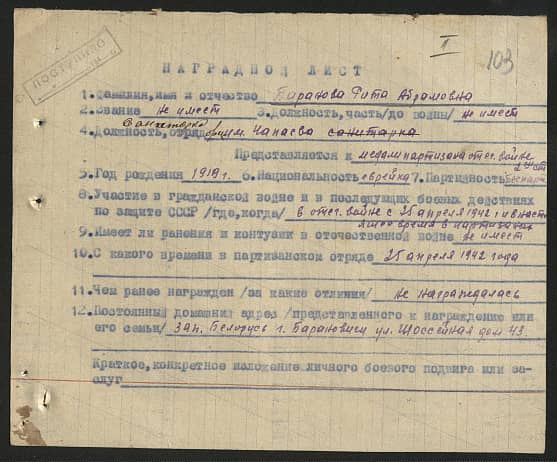 ПОСТУПИЛО
I
103
НАГРАДНОЙ ЛИСТ
1.Фамилия,имя и отчество Рита Абрамовна
2.Звание не имеет 3.Должность,часть/до войны/ не имеет
Санитарка
4.Должность,отряд им. Чапаева санитарка
Представляется к медали партизана отеч. войне
2й ст
5.Год рождения 1919 г. 6.Национальность еврейка 7.Партийность Беспарт
8.Участие в гражданской войне и в последующих боевых действиях
по защите СССР /где,когда/ в отеч. войне с 25 апреля 1942 г и в наст
ящее время в партизанах
9.Имеет ли ранения и контузии в отечественной войне не имеет
10.С какого времени в партизанском отряде 25 апреля 1942 года
11.Чем ранее награжден /за какие отличия/ не награждалась
12.Постоянный домашний адрес /представленного к награждению или
его семьи/ Зап. Белорусь г. Барановичи ул. Шоссейная дом 43.
Краткое,конкретное изложение личного боевого подвига или за-
слуг